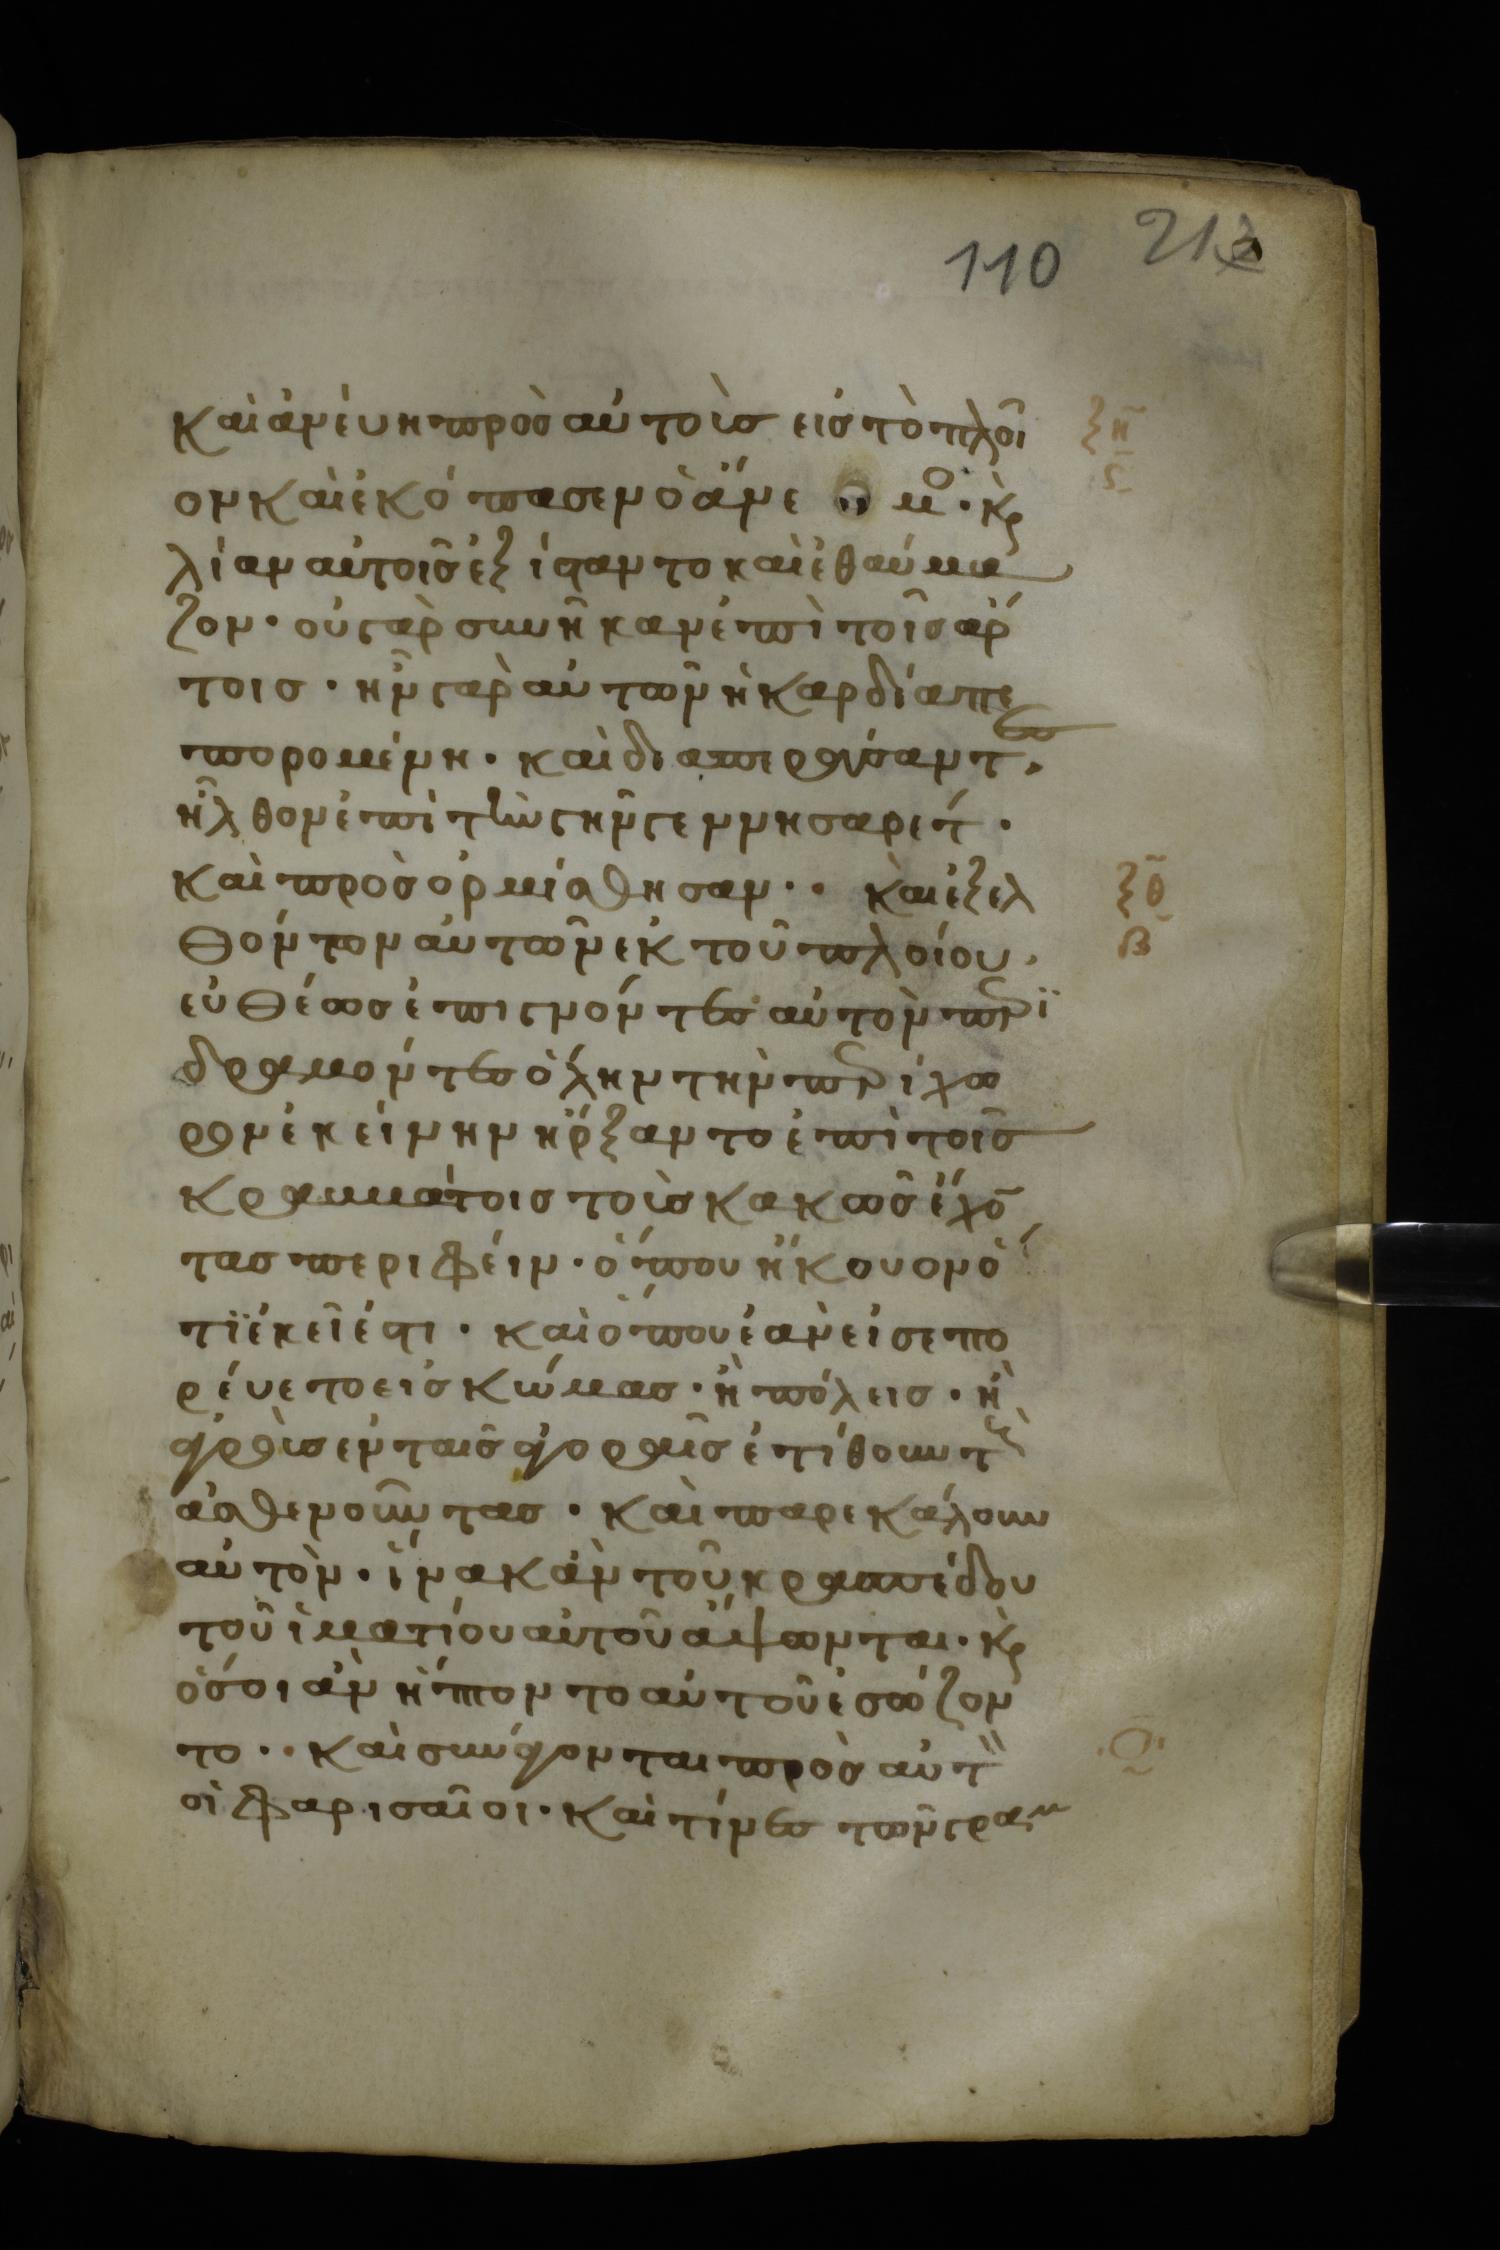 110 212
καὶ ἀνέυη πρὸσ αὐτοὺσ εἰσ τὸ πλοῖ ξη
ον καὶ ἐκόπασεν ὁ ἄνε μο. κς ϛ
λίαν αὐτοῖσ ἐξίσταντο καὶ ἐθαύμα
ζον. οὐ γὰρ συνῆκαν ἐπὶ τοῖσ ἄρ
τοισ. ἦν γὰρ αὐτῶν ἡ καρδία πε
πορομένη. καὶ διαπεράσαντεσ
ἦλθον ἐπὶ τὴν γῆν γεννησαρέτ.
καὶ πρὸσορμίσθησαν.. καὶ ἐξελ ξθ
θόντον αὐτῶν ἐκ τοῦ πλοίου. β
εὐθέωσ ἐπιγνόντεσ αὐτὸν πϊ
δραμόντεσ ὅλην τὴν πίχω
ραν ἐκείνην ἤρξαντο ἐπὶ τοῖσ
κραμμάτοισ τοὺσ κακῶσ ἔχο
τασ περιφέιν. ὅπου ἤκουον ὅ
τϊ ἐκεῖ ἐστι. καὶ ὅπου ἐὰν εἰσεπο
ρέυετο εἰσ κώμασ. ἢ πόλεισ. ἢ
ἀγροὺσ ἐν ταῖσ ἀγοραῖσ ἐτίθουν τ
ἀσθενοῦντασ. καὶ παρεκάλουν
αὐτὸν. ἵνα κἀν τοῦ κρασπέδου
τοῦ ἱματίου αὐτοῦ ἅψωνται. κς
ὅσοι ἀν ἥπτοντο αὐτοῦ ἐσώζον
το.. καὶ συνάγονται πρὸσ αὐτ ο
οἱ φαρισαῖοι. καὶ τίνεσ τῶν γραμ